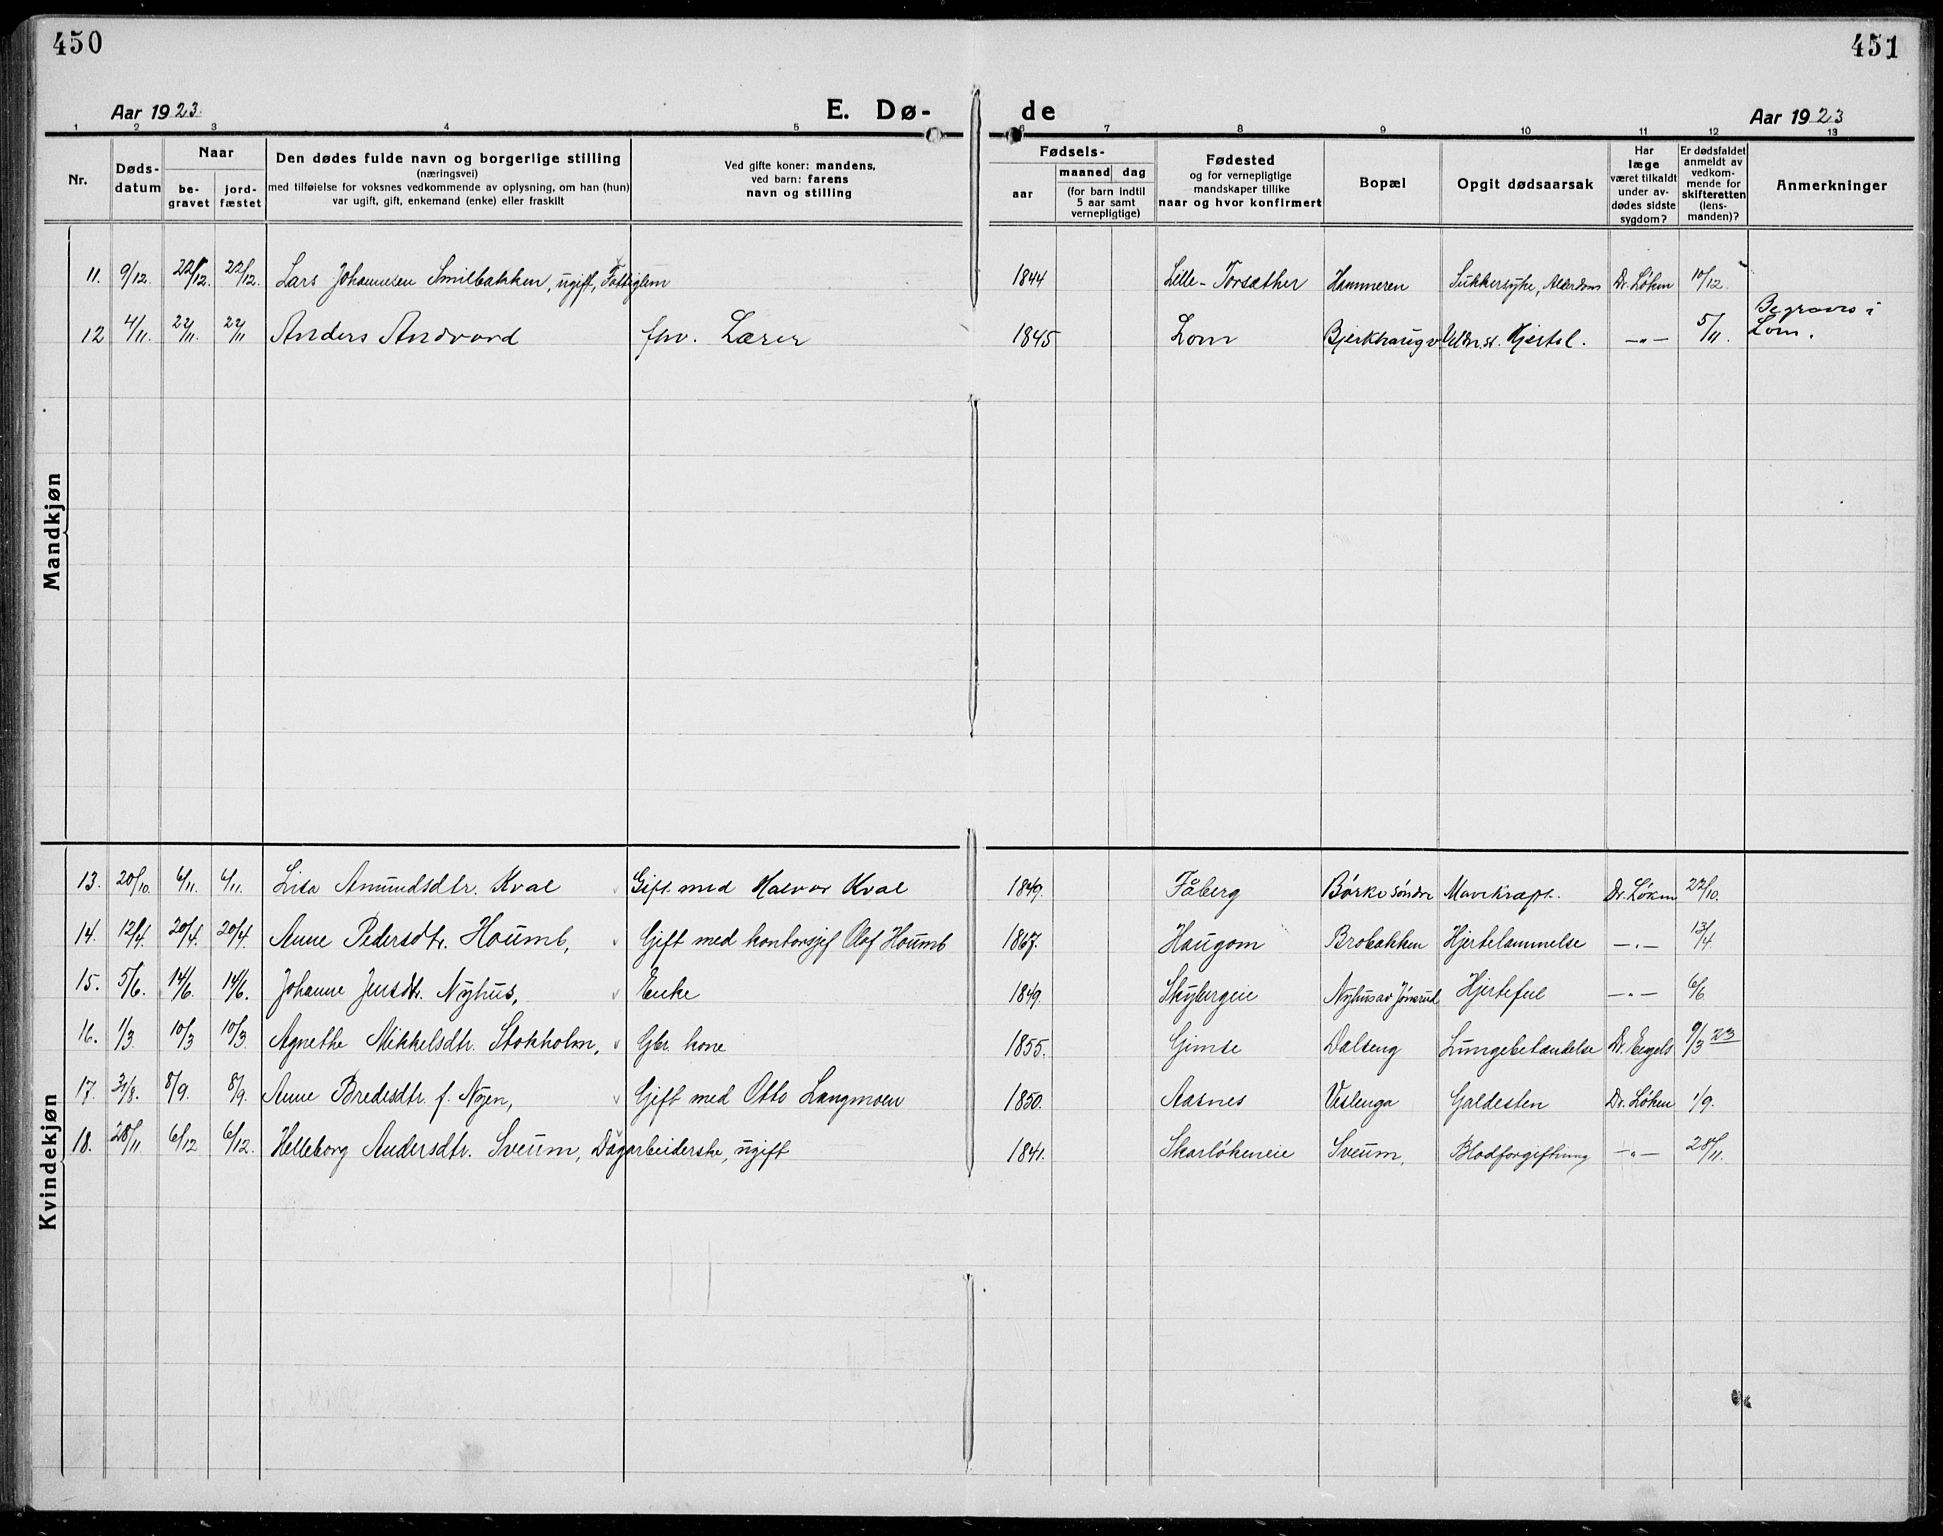 450
451
Aar 1923.
E. Dø-
de
Aar 1923
1 2 3 4 5 6 7 8 9 10 11 12 13
Nr.
Døds-
datum
Naar
be-
gravet
jord-
fæstet
Den dødes fulde navn og borgerlige stilling
(næringsvei)
med tilføielse for voksnes vedkommende av oplysning, om han (hun)
var ugift, gift, enkemand (enke) eller fraskilt
Ved gifte koner: mandens,
ved barn: farens
navn og stilling
Fødsels-
aar
maaned dag
(for barn indtil
5 aar samt
vernepligtige)
Fødested
og for vernepligtige
mandskaper tillike
naar og hvor konfirmert
Bopæl
Opgit dødsaarsak
Har
læge
været tilkaldt
under av-
dødes sidste
sygdom?
Er dødsfaldet
anmeldt av
vedkom-
mende for
skifteretten
(lens-
manden)?
Anmerkninger
Mandkjøn
11. 9/12. 22/12. 22/12. Lars Johannesen Smilbakken, ugift, Fattiglem 1844 Lille-Torsæther Hammeren Sukkersyke, Alderdom Dr. Løken 10/12.
12 4/11. 22/11. 22/11 Anders Andvord fhv. Lærer 1845 Lom Bjerkhaug Hjertel. —„— 5/11. Begraves i
Lom.
Kvindekjøn
13. 20/10. 6/11. 6/11. Lisa Amundsdtr. Kval Gift med Halvor Kval 1849. Fåberg Børke søndre Mavekræft. Dr. Løken 22/10.
14. 12/4. 20/4. 20/4. Anne Pedersdtr. Houmb, Gift med kontorsjef Olaf Houmb 1867. Haugom Brobakken Hjertelammelse —„— 13/4
15. 5/6. 14/6. 14/6. Johanne Jensdtr. Nyhus, Enke 1849. Skybergeie Nyhus av Jønsrud Hjertefeil —„— 6/6
16. 1/3. 10/3 10/3 Agnethe Mikkelsdtr. Stokholm, Gbr. kone 1855. Gimse Dalseng Lungebetændelse Dr. 9/3 23
17. 31/8. 8/9. 8/9. Anne Bredesdtr. f. Nøjen, Gift med Otto Langmoen 1850. Aasnes Veslenga Galdesten Dr. Løken 1/9.
18. 28/11. 6/12 6/12. Helleborg Andersdtr. Sveum, Dagarbeiderske, ugift 1841. Skarløkeneie Sveum, Blodforgiftning —„— 28/11.